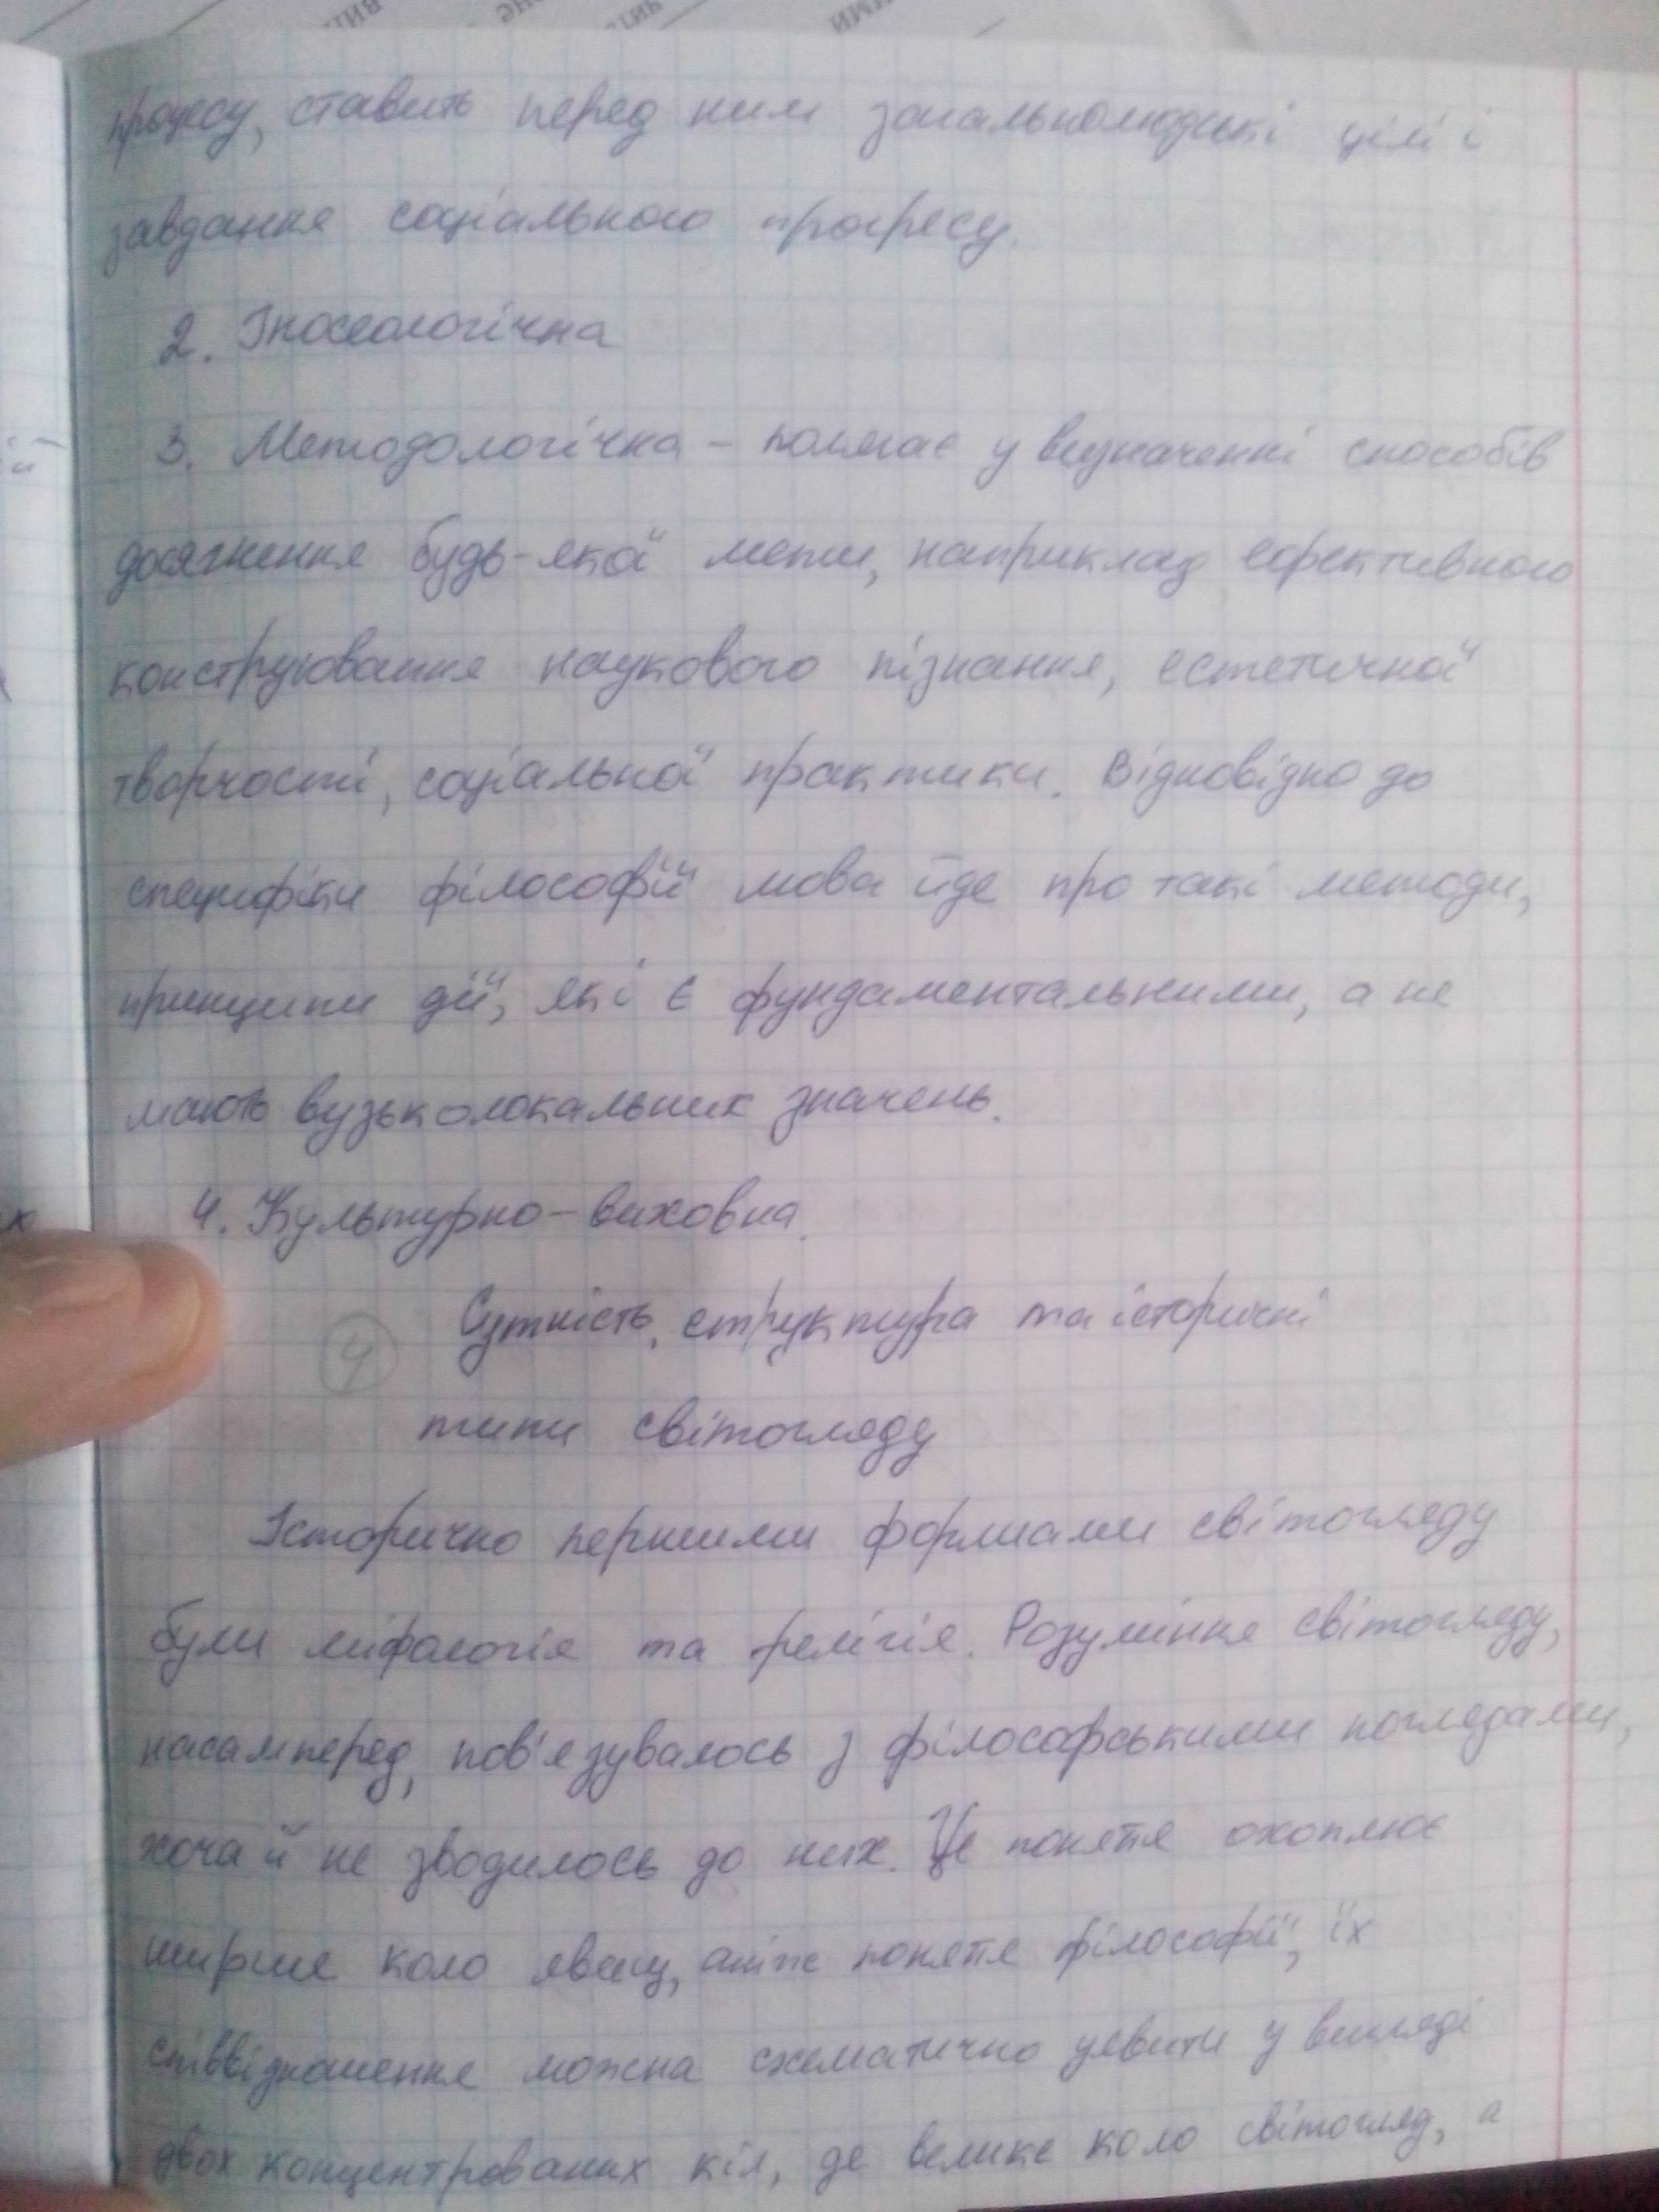 процесу, ставить перед ним загальнолюдські цілі і
завдання соціального прогресу.
2. Гносеологічна
3. Методологічна – полягає у визначенні способів
досягнення будь-якої мети, наприклад ефективного
конструювання наукового пізнання, естетичної
творчості, соціальної практики. Відповідно до
специфіки філософії мова йде про такі методи,
принципи дії, які є фундаментальними, а не
мають вузьколокальних значень.
4. Культурно-виховна.
4 Сутність, структура та історичні
типи світогляду
Історично першими формами світогляду
були міфологія та релігія. Розуміння світогляду,
насамперед, пов'язувалось з філософськими поглядами,
хоча й не зводилось до них. Це поняття охоплює
ширше коло явищ, аніж поняття філософії, їх
співвідношення можна схематично уявити у вигляді
двох концентрованих кіл, де велике коло світогляд, а